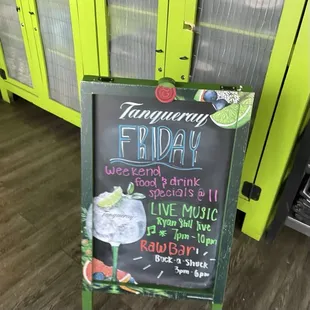 Tanqueray
FRIDAY
weekend
food & drink
specials @ 11
LIVE MUSIC
Ryan Stll live
7pm - 10pm
RAW BAR
Buck-a-Shuck
3pm - 6pm